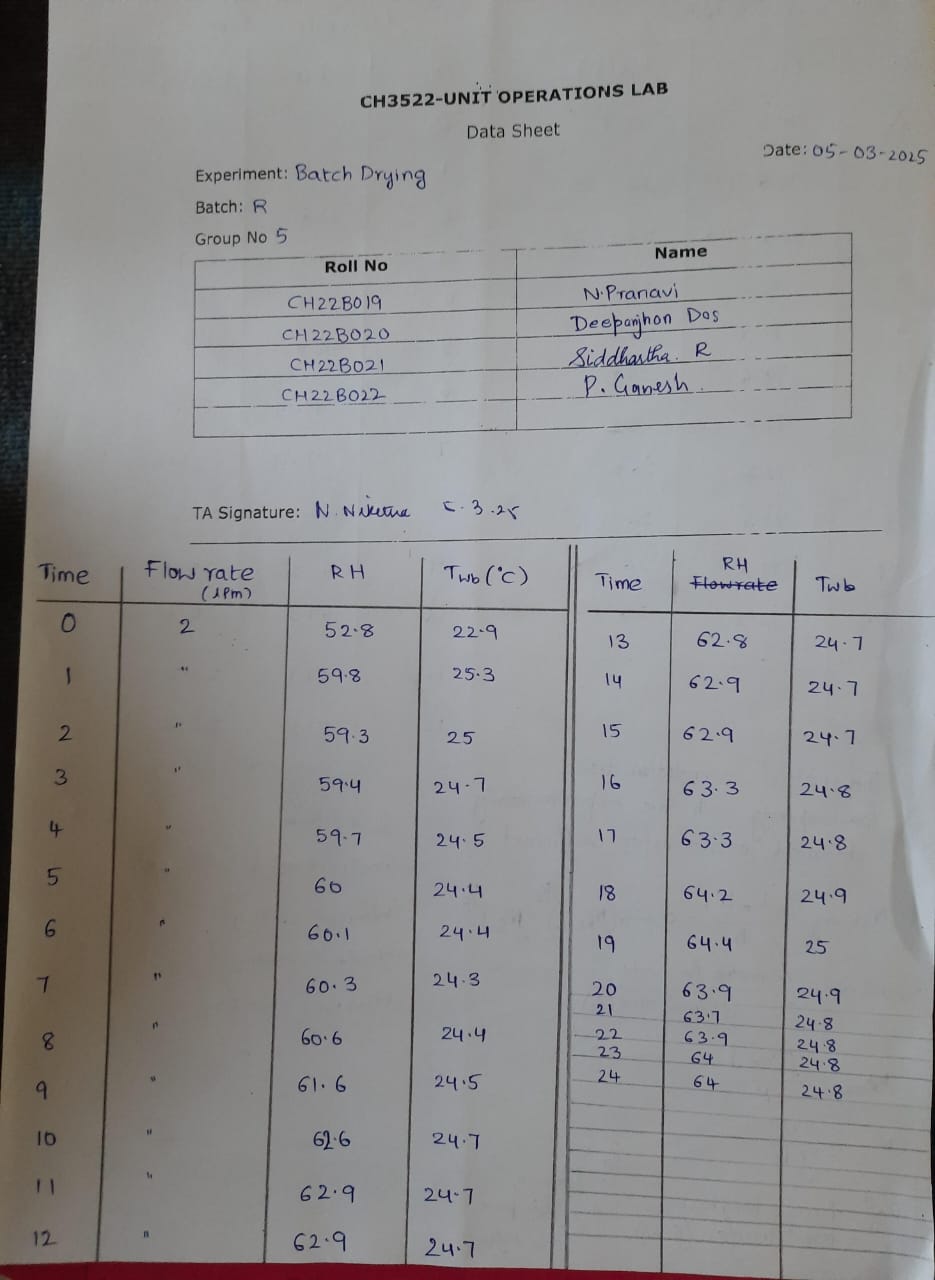 CH3522-UNIT OPERATIONS LAB
Data Sheet
Date: 05-03-2025
Experiment: Batch Drying
Batch: R
Group No 5
Roll No Name
CH22B019 N.Pranavi
CH22B020 Deepanjhon Das
CH22B021 Siddhartha. R
CH22B022 P. Ganesh
TA Signature: N. 3.25
Time Flow rate (lpm) RH Twb (°C)
0 2 52.8 22.9
1 " 59.8 25.3
2 " 59.3 25
3 " 59.4 24.7
4 " 59.7 24.5
5 " 60 24.4
6 " 60.1 24.4
7 " 60.3 24.3
8 " 60.6 24.4
9 " 61.6 24.5
10 " 62.6 24.7
11 " 62.9 24.7
12 " 62.9 24.7
Time RH Flowrate Twb
13 62.8 24.7
14 62.9 24.7
15 62.9 24.7
16 63.3 24.8
17 63.3 24.8
18 64.2 24.9
19 64.4 25
20 63.9 24.9
21 63.7 24.8
22 63.9 24.8
23 64 24.8
24 64 24.8